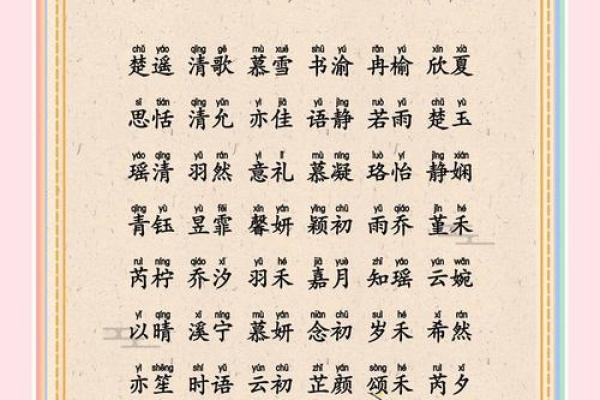 chǔ yáo qīng gē mù xuě shū yú rǎn yú xīn xià
楚遥 清歌 慕雪 书渝 冉榆 欣夏
sī tián qīng yǔn yì jiā yǔ jìng ruò yǔ chǔ yù
思恬 清允 亦佳 语静 若雨 楚玉
yáo qīng yǔ rán yì lǐ mù níng luò yí jìng xián
瑶清 羽然 意礼 慕凝 珞怡 静娴
qīng yù yù fēi xīn yán yǐng chū yǔ qiáo jǐn hé
青钰 昱霏 馨妍 颖初 雨乔 堇禾
ruì níng qiáo xī yǔ hé jiā yuè zhī yáo yún wǎn
芮柠 乔汐 羽禾 嘉月 知瑶 云婉
yǐ qíng xī níng mù yán niàn chū suì hé xī rán
以晴 溪宁 慕妍 念初 岁禾 希然
yì shēng shí yǔ yún chū zhǐ yán sòng hé ruì xī
亦笙 时语 云初 芷颜 颂禾 芮夕